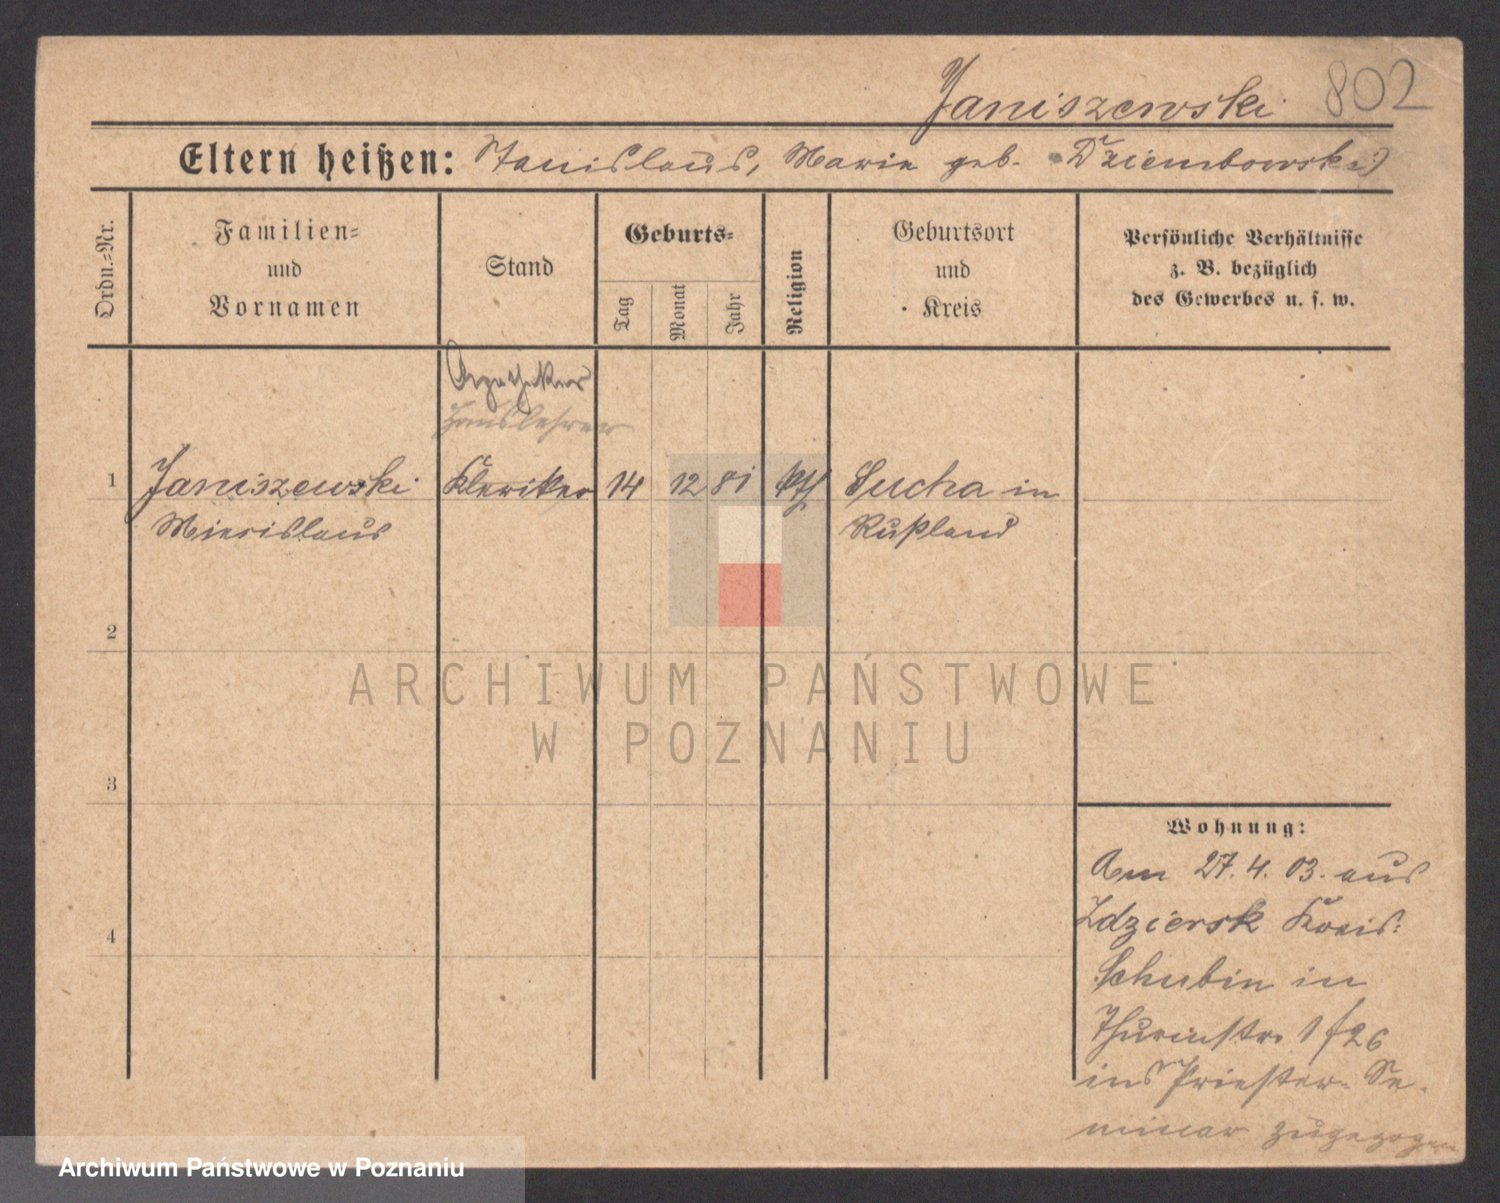 Janiszewski 802
Eltern heißen: Stanislaus, Marie geb. Dziembowski
Ordn.-Nr.
Familien-
und
Vornamen
Stand
Geburts-
Tag
Monat
Jahr
Religion
Geburtsort
und
Kreis
Persönliche Verhältnisse
z. B. bezüglich
des Gewerbes u. s. w.
Apotheker
Hauslehrer
1 Janiszewski Kleriker 14 12 81 kth Sucha in
Miecislaus Rußland
2
ARCHIWUM PAŃSTWOWE
W POZNANIU
3
Wohnung:
Am 27.4.03. aus
4 Zdziersk Kreis
Schubin in
Thurmstr. 1/26
ins Priester-Se-
minar zugezogen
Archiwum Państwowe w Poznaniu